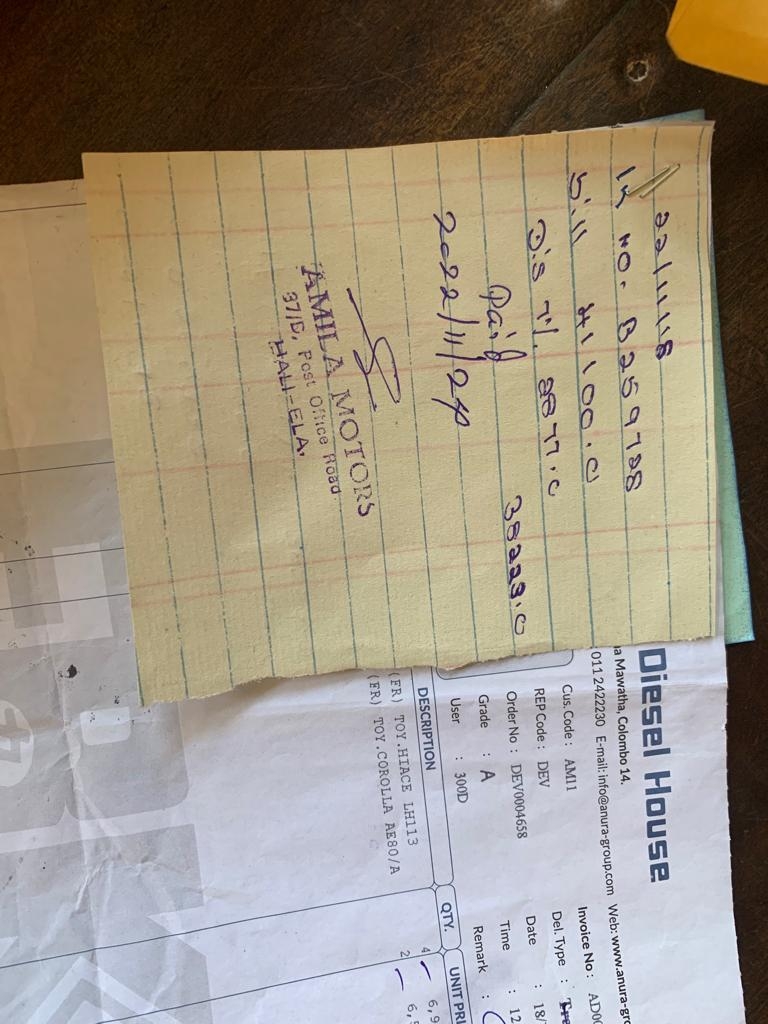 22/11/18
In No. B259728
Bill 41100.0
Dis 7%. 2877.0
38223.0
Paid
2022/11/24
AMILA MOTORS
37/D, Post Office Road
HALI-ELA.
Diesel House
Mawatha, Colombo 14.
011 2422230 E-mail: info@anura-group.com Web: www.anura-gr
Cus. Code : AM11
REP Code : DEV
Order No : DEV0004658
Grade : A
User : 300D
Invoice No : AD0
Del. Type :
Date : 18/
Time : 12
Remark :
DESCRIPTION QTY. UNIT PRI
(FR) TOY.HIACE LH113 4 6,9
(FR) TOY.COROLLA AE80/A 2 6,